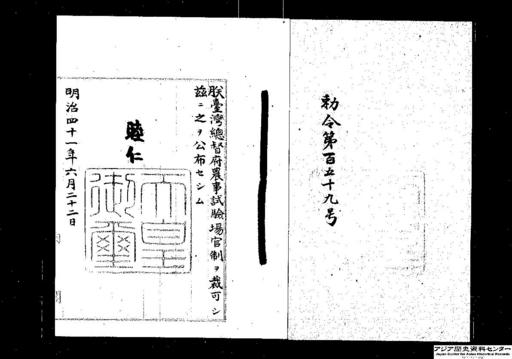 勅令第百五十九号
朕臺灣總督府農事試驗場官制ヲ裁可シ
茲ニ之ヲ公布セシム
睦仁
天皇
御璽
明治四十一年六月二十二日
アジア歴史資料センター
Japan Center for Asian Historical Records